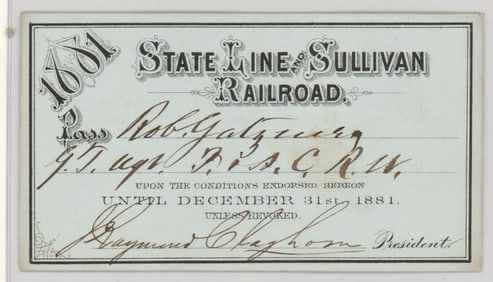 1881.
STATE LINE AND SULLIVAN
RAILROAD.
Pass Rob. Gatzmer
G. T. Agt. R. W.
UPON THE CONDITIONS ENDORSED HEREON
UNTIL DECEMBER 31st, 1881.
UNLESS REVOKED.
J Raymond Claghorn President.